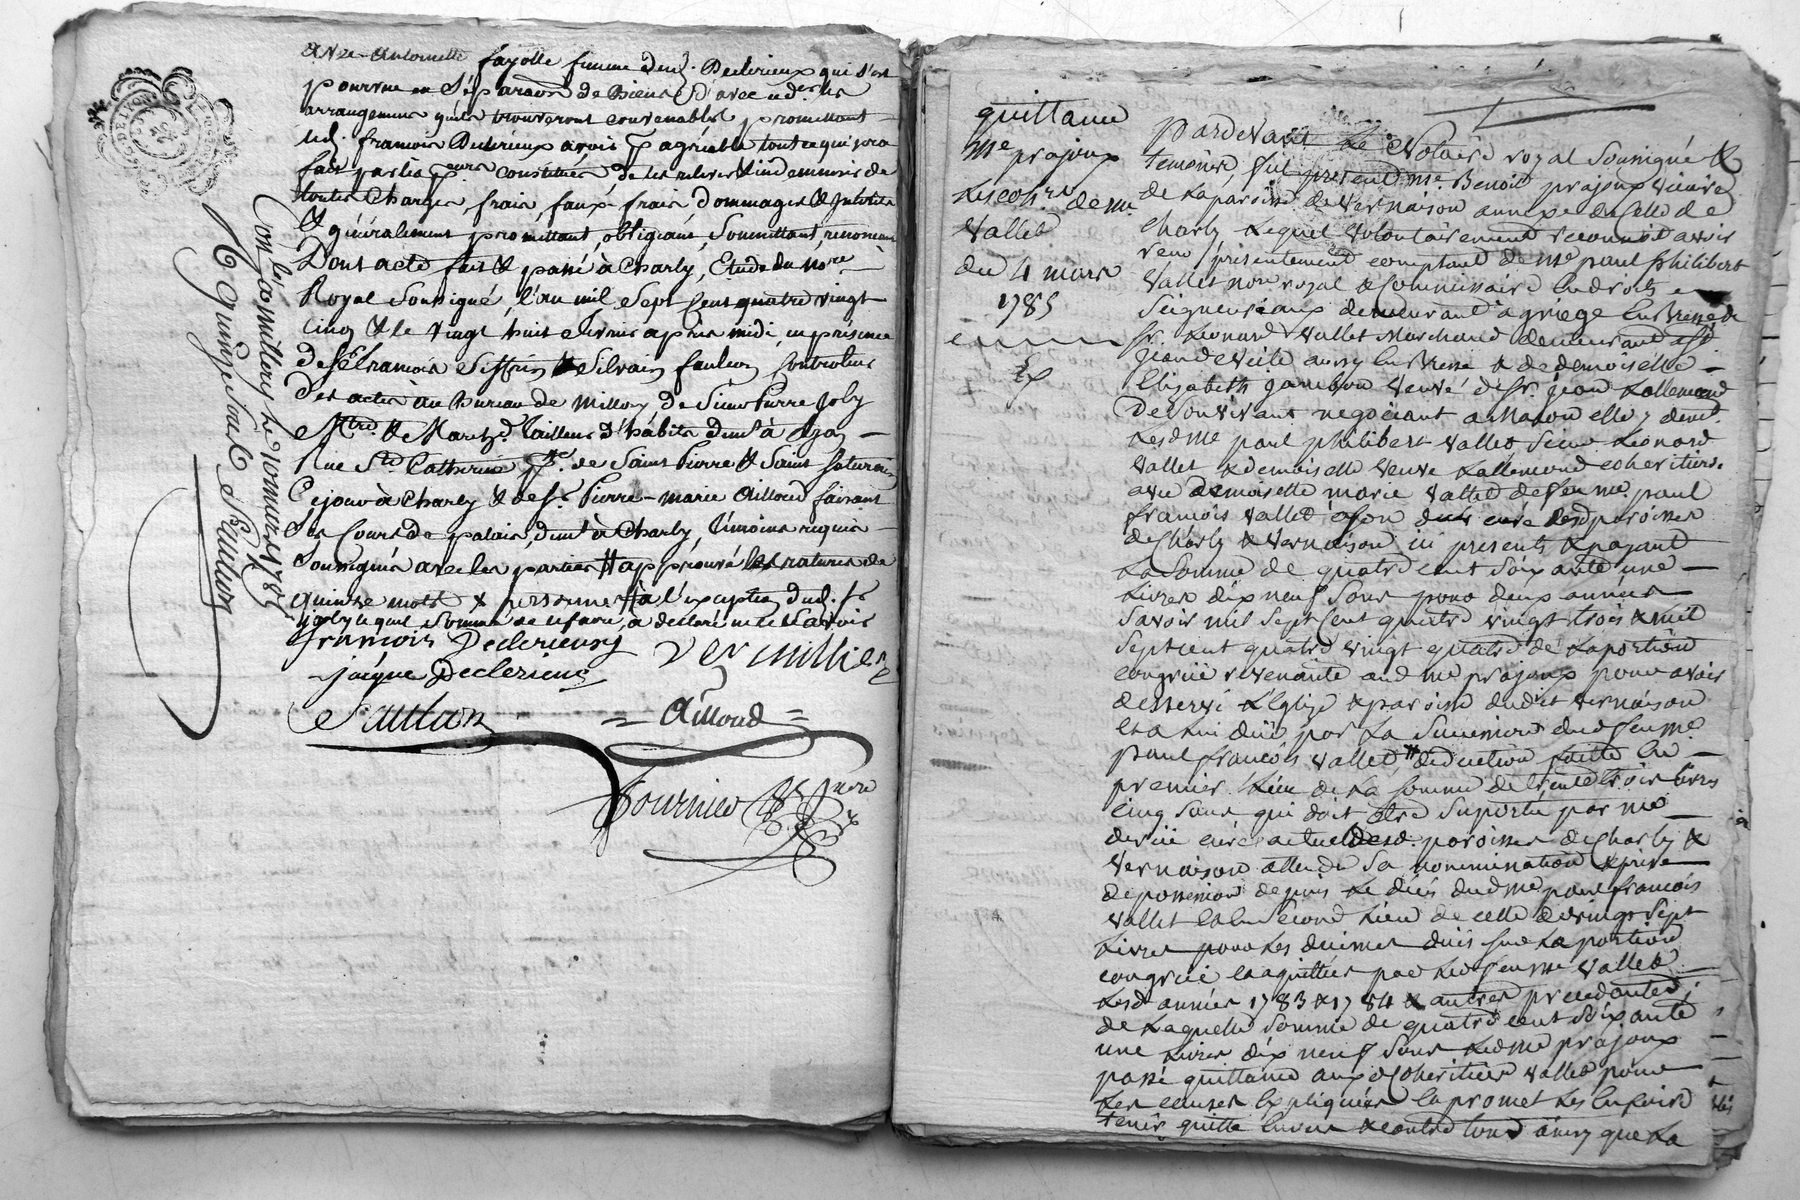 Antoinette fayolle femme dud. Declerieux qui s'est
pourvue en Séparaon de Biens d'avec
arrangemens qu'ils trouveront convenables promettant
led. francois Declerieux avoir agréable tout ce qui sera
fait par les constitués de les relever & indemniser de
toutes charges, frais, faux frais dommages & intérêts
& généralement promettant, obligeant, soumettant, renonceant
Dont acte fait & passé à Charly, Etude du nore
Royal Soussigné, l'an mil Sept cent quatre vingt
cinq & le vingt huit fevrier après midi, en présence
de Sr francois & Silvain faulcon controleur
des actes au Bureau de Millery de Sieur Pierre Joly
Mtre & Marchd Tailleur d'habits demt à Lyon
Rue Ste Catherine psse de Saint Pierre & Saint Saturnin
Ce jour à Charly & de Sr Pierre-marie Ailloud faisant
ses Cours de palais, demt à Charly, témoins requis
Soussignés avec les parties approuvé les ratures de
quinze mots & à l'exception dud. Sr
joly lequel Sommé de le faire, a déclaré ne le Savoir
francois Declerieux Vermillier
jaque Declerieux
faulcon Ailloud
fournier
Conlé a millery le 10 mars 1785
R quinze sols
faulcon
quittance
Me prajoux
Les cohrs de me
Vallet
du 4 mars
1785
Ex
Pardevant Le Notaire royal Soussigné &
temoins, fut present me. Benoit prajoux vicaire
de La paroisse de vernaison annexe de Celle de
Charly Lequel volontairement reconnoit avoir
recu présentement comptant de me paul philibert
vallet nore royal & Commissaire en droits
Seigneuriaux demeurant à griege en Bresse, de
Sr. Léonard Vallet Marchand demeurant a St
jean de veile aussy en Bresse & de demoiselle
Elizabeth jambon veuve de Sr. jean Lallemand
de Son vivant negociant a Macon elle y demt.
Lesd me paul philibert vallet Sieur Léonard
vallet & demoiselle veuve Lallemand coheritiers
avec demoiselle marie vallet de feu me. paul
francois vallet a Son curé desd paroisses
de Charly & vernaison ici presents & payant
La Somme de quatre cent Soixante une
Livres dix neuf Sous pour deux années
Savoir mil Sept Cent quatre vingt trois & mil
Sept cent quatre vingt quatre de La portion
congrüe revenante aud me prajoux pour avoir
desservi L'Eglise & paroisse dudit vernaison
et a lui düe par La Succession dud feu me.
paul françois vallet deduction faitte En
premier lieu de La Somme de trente trois livres
cinq Sous qui doit être Suportée par me
curé actuel desd. paroisses de Charly &
vernaison attendu Sa nommination & prise
de possession depuis Le décès dud me paul francois
vallet et En Second Lieu de celle de vingt Sept
Livres pour Les decimes dües Sur La portion
congrüe et aquittées par Led feu me vallet
Lesd années 1783 & 1784 & autres precedantes;
de Laquelle Somme de quatre cent Soixante
une Livres dix neuf Sous Ledme prajoux
passe quittance aux Coheritiers vallet pour
Les causes Expliquées Et promet Les En faire
tenir quitte Envers & contre tous ainsy que La